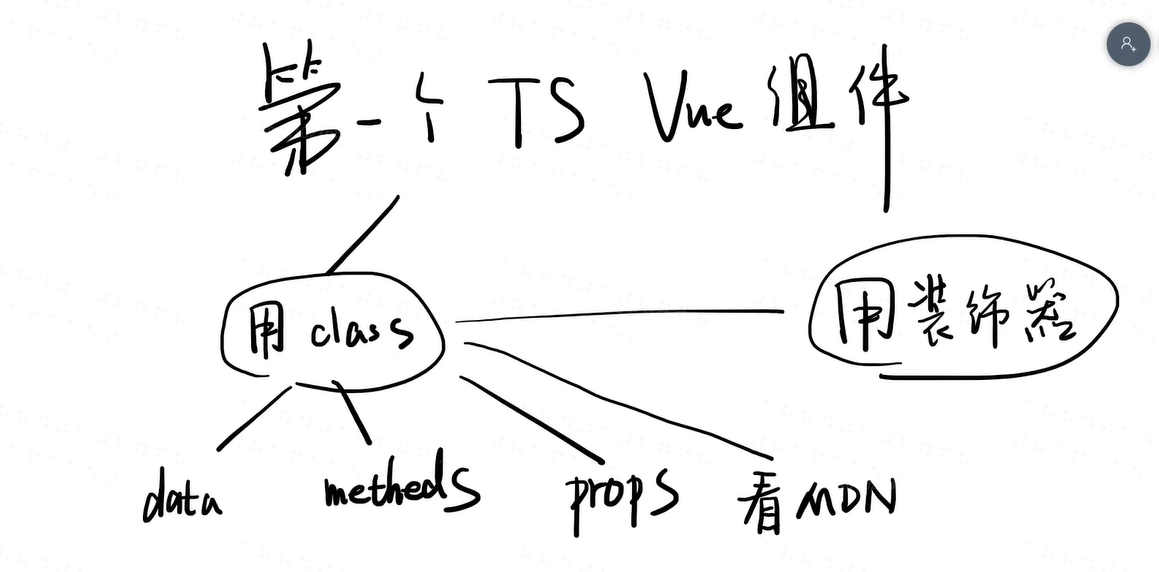 第一个 TS Vue 组件
用 class
用装饰器
data
metheds
props
看 MDN